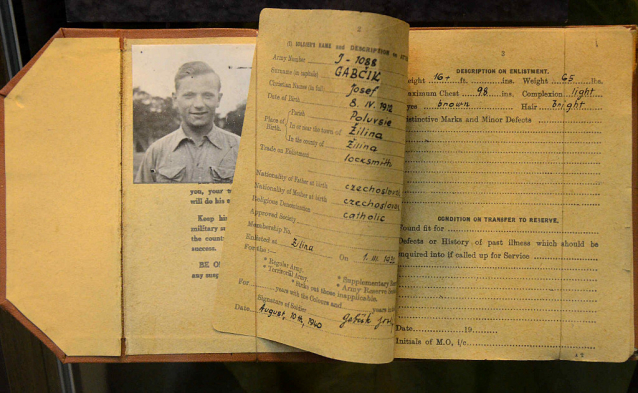 you, your
will do his
Keep
military
the count
success.
BE
any
2
(I) SOLDIER'S NAME and DESCRIPTION on
Army Number J-1088
Surname (in capitals) GABČÍK
Christian Names (in full) Josef
Date of Birth 8. IV. 1912
Place of Birth.
Parish Poluvsie
In or near the town of Žilina
In the county of Žilina
Trade on Enlistment locksmith
Nationality of Father at birth czechoslov
Nationality of Mother at birth czechoslov
Religious Denomination catholic
Approved Society
Membership No.
Enlisted at Žilina On 1. III.
For the:—
* Regular Army. * Supplementary
* Territorial Army. * Army Reserve
* Strike out those inapplicable.
For years with the Colours and years
Signature of Soldier Gabčík
Date August, 10th, 1940
3
DESCRIPTION ON ENLISTMENT.
eight 16- ft. ins. Weight 65 lbs.
aximum Chest 98 ins. Complexion light
yes brown Hair bright
istinctive Marks and Minor Defects
CONDITION ON TRANSFER TO RESERVE.
ound fit for
Defects or History of past illness which should be
nquired into if called up for Service
Date 19
Initials of M.O. i/c